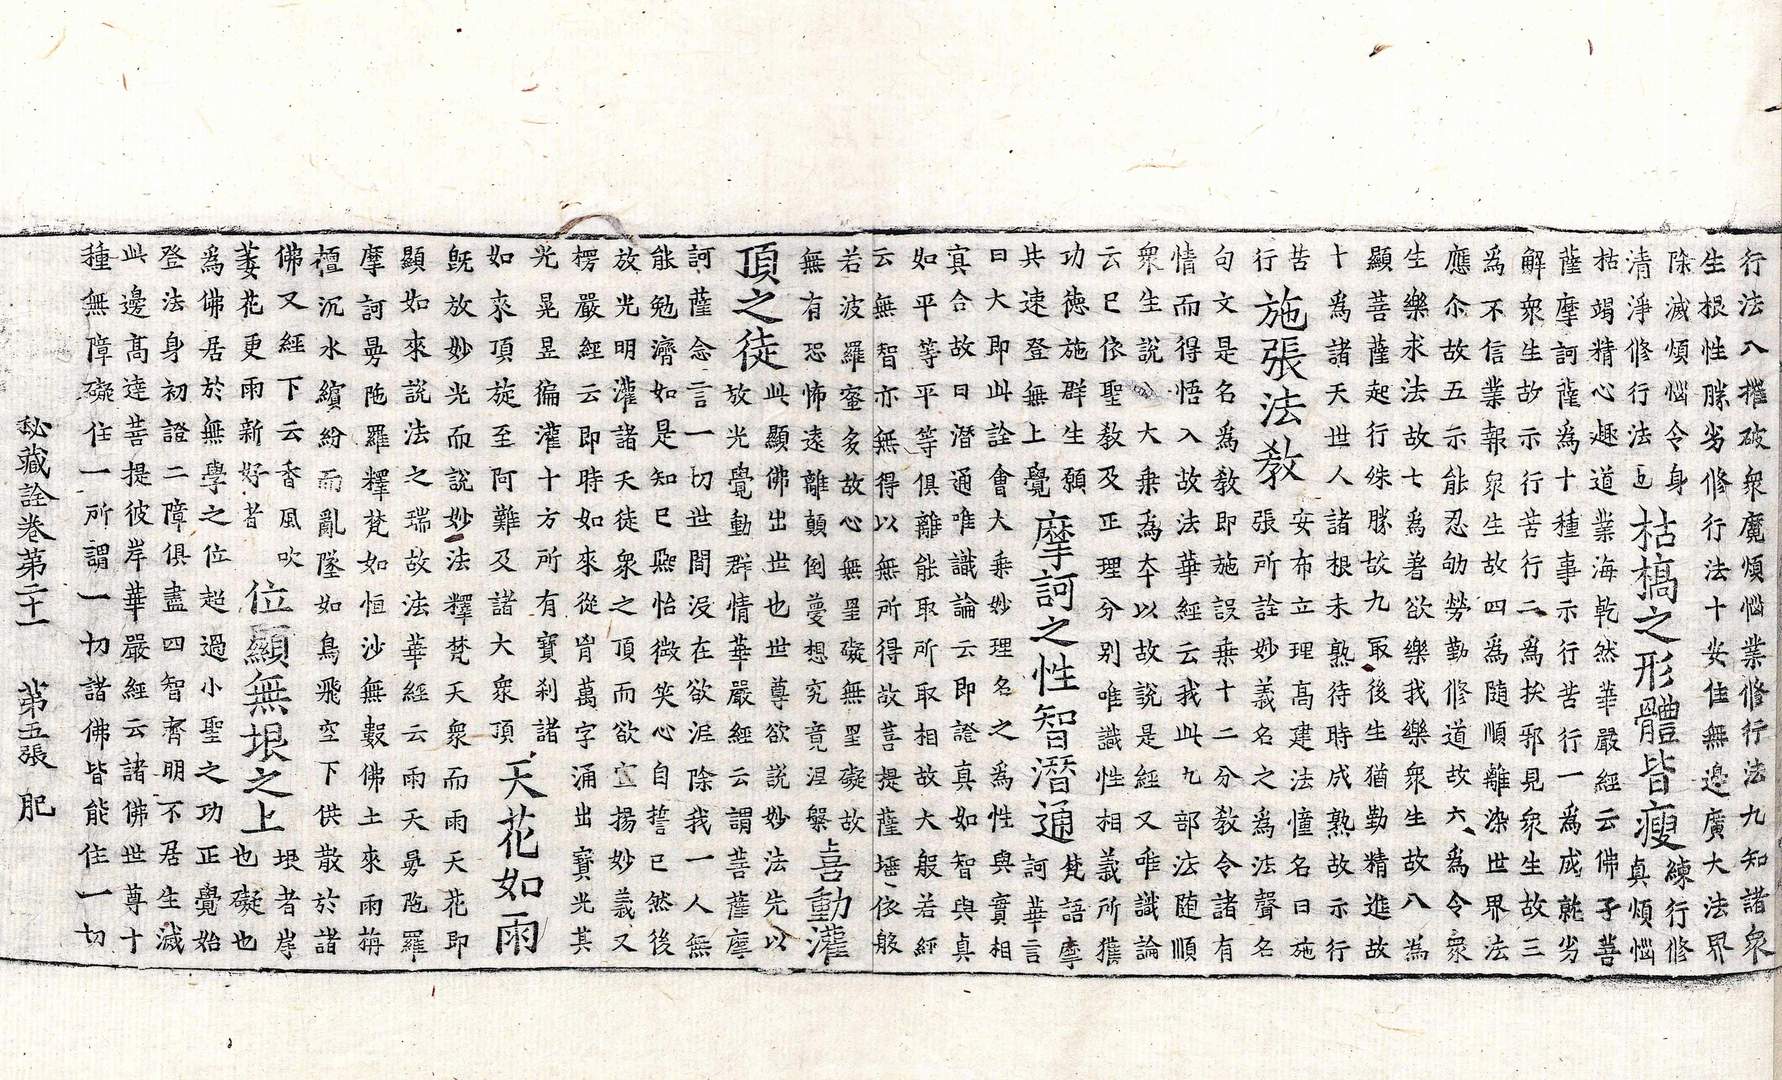 行法八摧破衆魔煩惱業修行法九知諸衆
生根性勝劣修行法十安住無邊廣大法界
除滅煩惱令身
清淨修行法也
枯槁之形體皆瘦
練行修
真煩惱
枯竭精心趣道業海乾然華嚴經云佛子菩
薩摩訶薩為十種事示行苦行一為成就劣
解衆生故示行苦行二為拔邪見衆生故三
為不信業報衆生故四為隨順離染世界法
應尒故五示能忍劬勞勤修道故六為令衆
生樂求法故七為著欲樂我樂衆生故八為
顯菩薩起行殊勝故九㝡後生猶勤精進故
十為諸天世人諸根未熟待時成熟故示行
苦
行
施張法教
安布立理高建法幢名曰施
張所詮妙義名之為法聲名
句文是名為教即施設乘十二分教令諸有
情而得悟入故法華經云我此九部法隨順
衆生說入大乘為本以故說是經又唯識論
云已依聖教及正理分別唯識性相義所獲
功德施群生願
共速登無上覺
摩訶之性智潛通
梵語摩
訶華言
曰大即此詮會大乘妙理名之為性與實相
冥合故曰潛通唯識論云即證真如智與真
如平等平等俱離能取所取相故大般若經
云無智亦無得以無所得故菩提薩埵依般
若波羅蜜多故心無罣礙無罣礙故
無有恐怖遠離顛倒夢想究竟涅槃
喜動灌
頂之徒
此顯佛出世也世尊欲說妙法先以
放光覺動群情華嚴經云謂菩薩摩
訶薩念言一切世間沒在欲泥除我一人無
能勉濟如是知已熙怡微笑心自誓已然後
放光明灌諸天徒衆之頂而欲宣揚妙義又
楞嚴經云即時如來從胷萬字涌出寶光其
光晃昱徧灌十方所有寶刹諸
如來頂旋至阿難及諸大衆頂
天花如雨
旣放妙光而說妙法釋梵天衆而雨天花即
顯如來說法之瑞故法華經云雨天曼陁羅
摩訶曼陁羅釋梵如恒沙無數佛土來雨栴
檀沉水繽紛而亂墜如鳥飛空下供散於諸
佛又經下云香風吹
萎花更雨新好者
位顯無垠之上
垠者岸
也礙也
為佛居於無學之位超過小聖之功正覺始
登法身初證二障俱盡四智齊明不居生滅
此邊高達菩提彼岸華嚴經云諸佛世尊十
種無障礙住一所謂一切諸佛皆能住一切
秘藏詮卷第二十一 第五張 肥